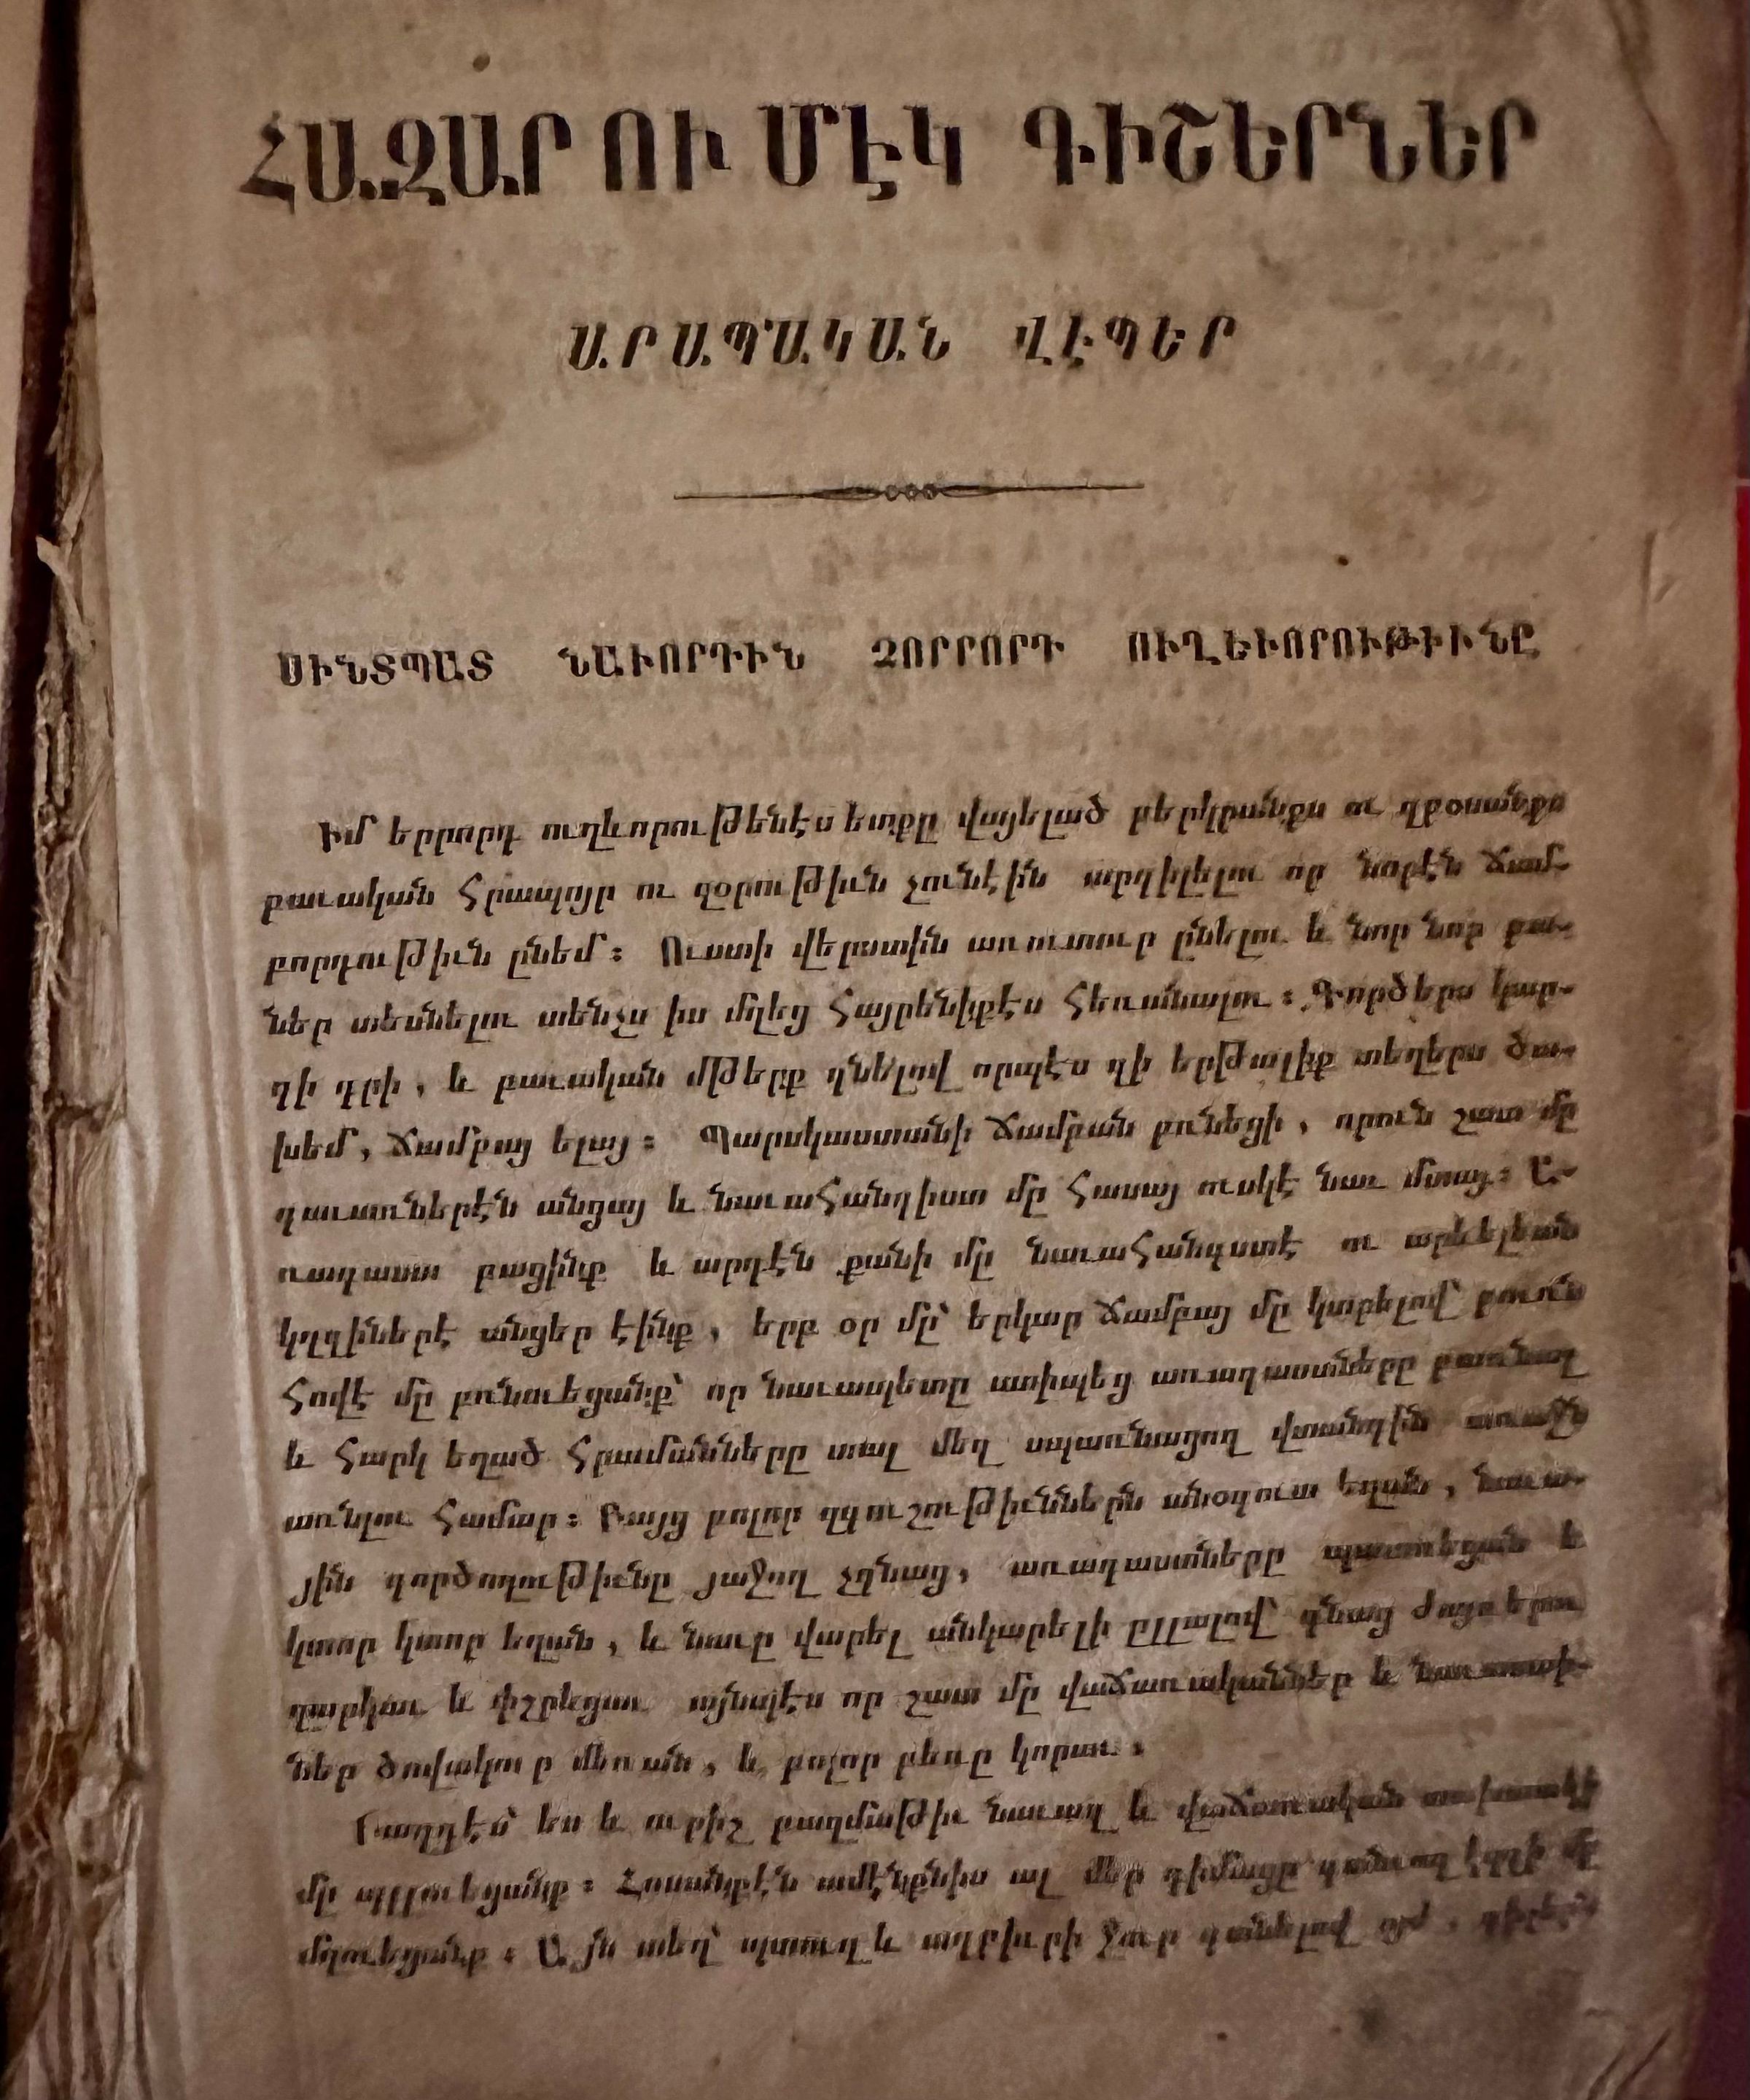 ՀԱԶԱՐ ՈՒ ՄԷԿ ԳԻՇԵՐՆԵՐ
ԱՐԱՊԱԿԱՆ ՎԷՊԵՐ
ՍԻՆՏՊԱՏ ՆԱՒՈՐԴԻՆ ՉՈՐՐՈՐԴ ՈՒՂԵՒՈՐՈՒԹԻՒՆԸ
Իմ երրորդ ուղևորութենէս ետքը վայելած բերկրանքս ու զբօսանքս
բաւական հրապոյր ու զօրութիւն չունէին արգիլելու որ նորէն ճամ-
բորդութիւն ընեմ։ Ուստի վերստին առուտուր ընելու և նոր նոր բա-
ներ տեսնելու տենչս իս մղեց հայրենիքէս հեռանալու։ Գործերս կար-
գի դրի, և բաւական մթերք գնելով որպէս զի երթալիք տեղերս ծա-
խեմ, ճամբայ ելայ։ Պարսկաստանի ճամբան բռնեցի, որուն շատ մը
գաւառներէն անցայ և նաւահանգիստ մը հասայ ուսկէ նաւ մտայ։ Ա-
ռագաստ բացինք և արդէն քանի մը նաւահանգստէ ու արևելեան
կղզիներէ անցեր էինք, երբ օր մը՝ երկար ճամբայ մը կտրելով՝ բուռն
հովէ մը բռնուեցանք՝ որ նաւապետը ստիպեց առագաստները
և հարկ եղած հրամանները տալ մեզ սպառնացող վտանգին առաջն
առնլու համար։ Բայց բոլոր զգուշութիւններն անօգուտ եղան, նաւա-
յին գործողութիւնը յաջող չգնաց, առագաստները պատռեցան և
կտոր կտոր եղան, և նաւը վարել անկարելի ըլլալով՝ գնաց ժայռերու
զարկաւ և փշրեցաւ այնպէս որ շատ մը վաճառականներ և նաւաստի-
ներ ծովակուր մեռան, և բոլոր բեռը կորաւ։
Բաղդէս՝ ես և ուրիշ բազմաթիւ նաւազ և վաճառական տախտակի
մը պլլուեցանք։ Հոսանքէն ամէնքնիս ալ մեր դիմացը գտնուող կղզի մը
մղուեցանք։ Այն տեղ՝ պտուղ և աղբիւրի ջուր գտնելով